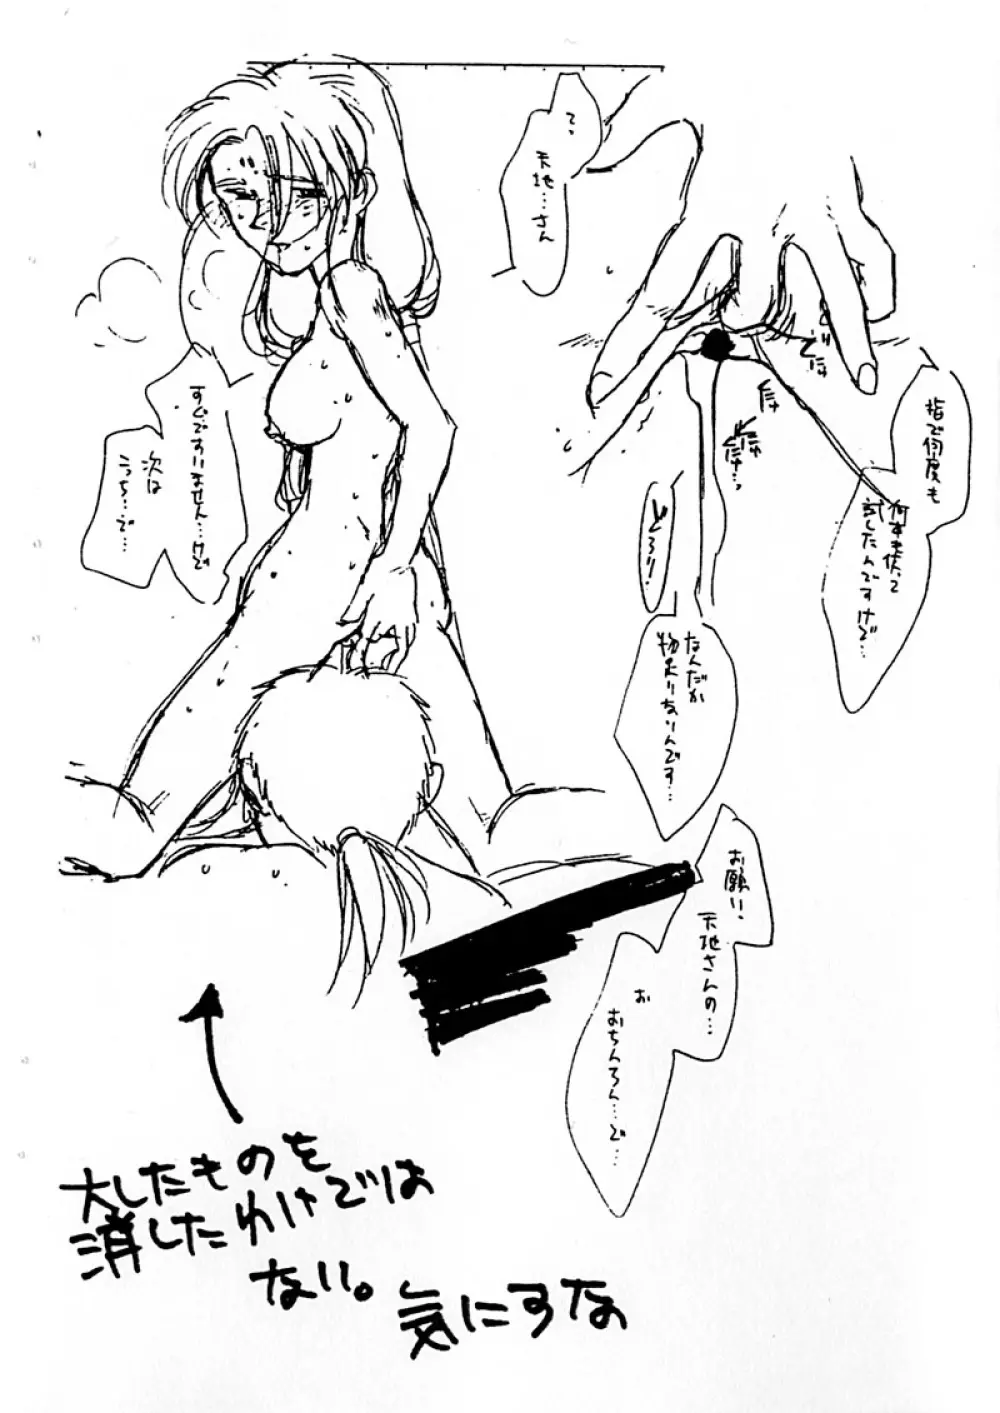 て、
天地…さん
指で何度も
何本も使って
試したんですけど…
なんだか
物足りないんです…
どろり
すぐですいません…けど
次は
こっち…で…
お願い、
天地さんの…
お
おちんちん…で…
大したものを
消したわけでは
ない。気にすな